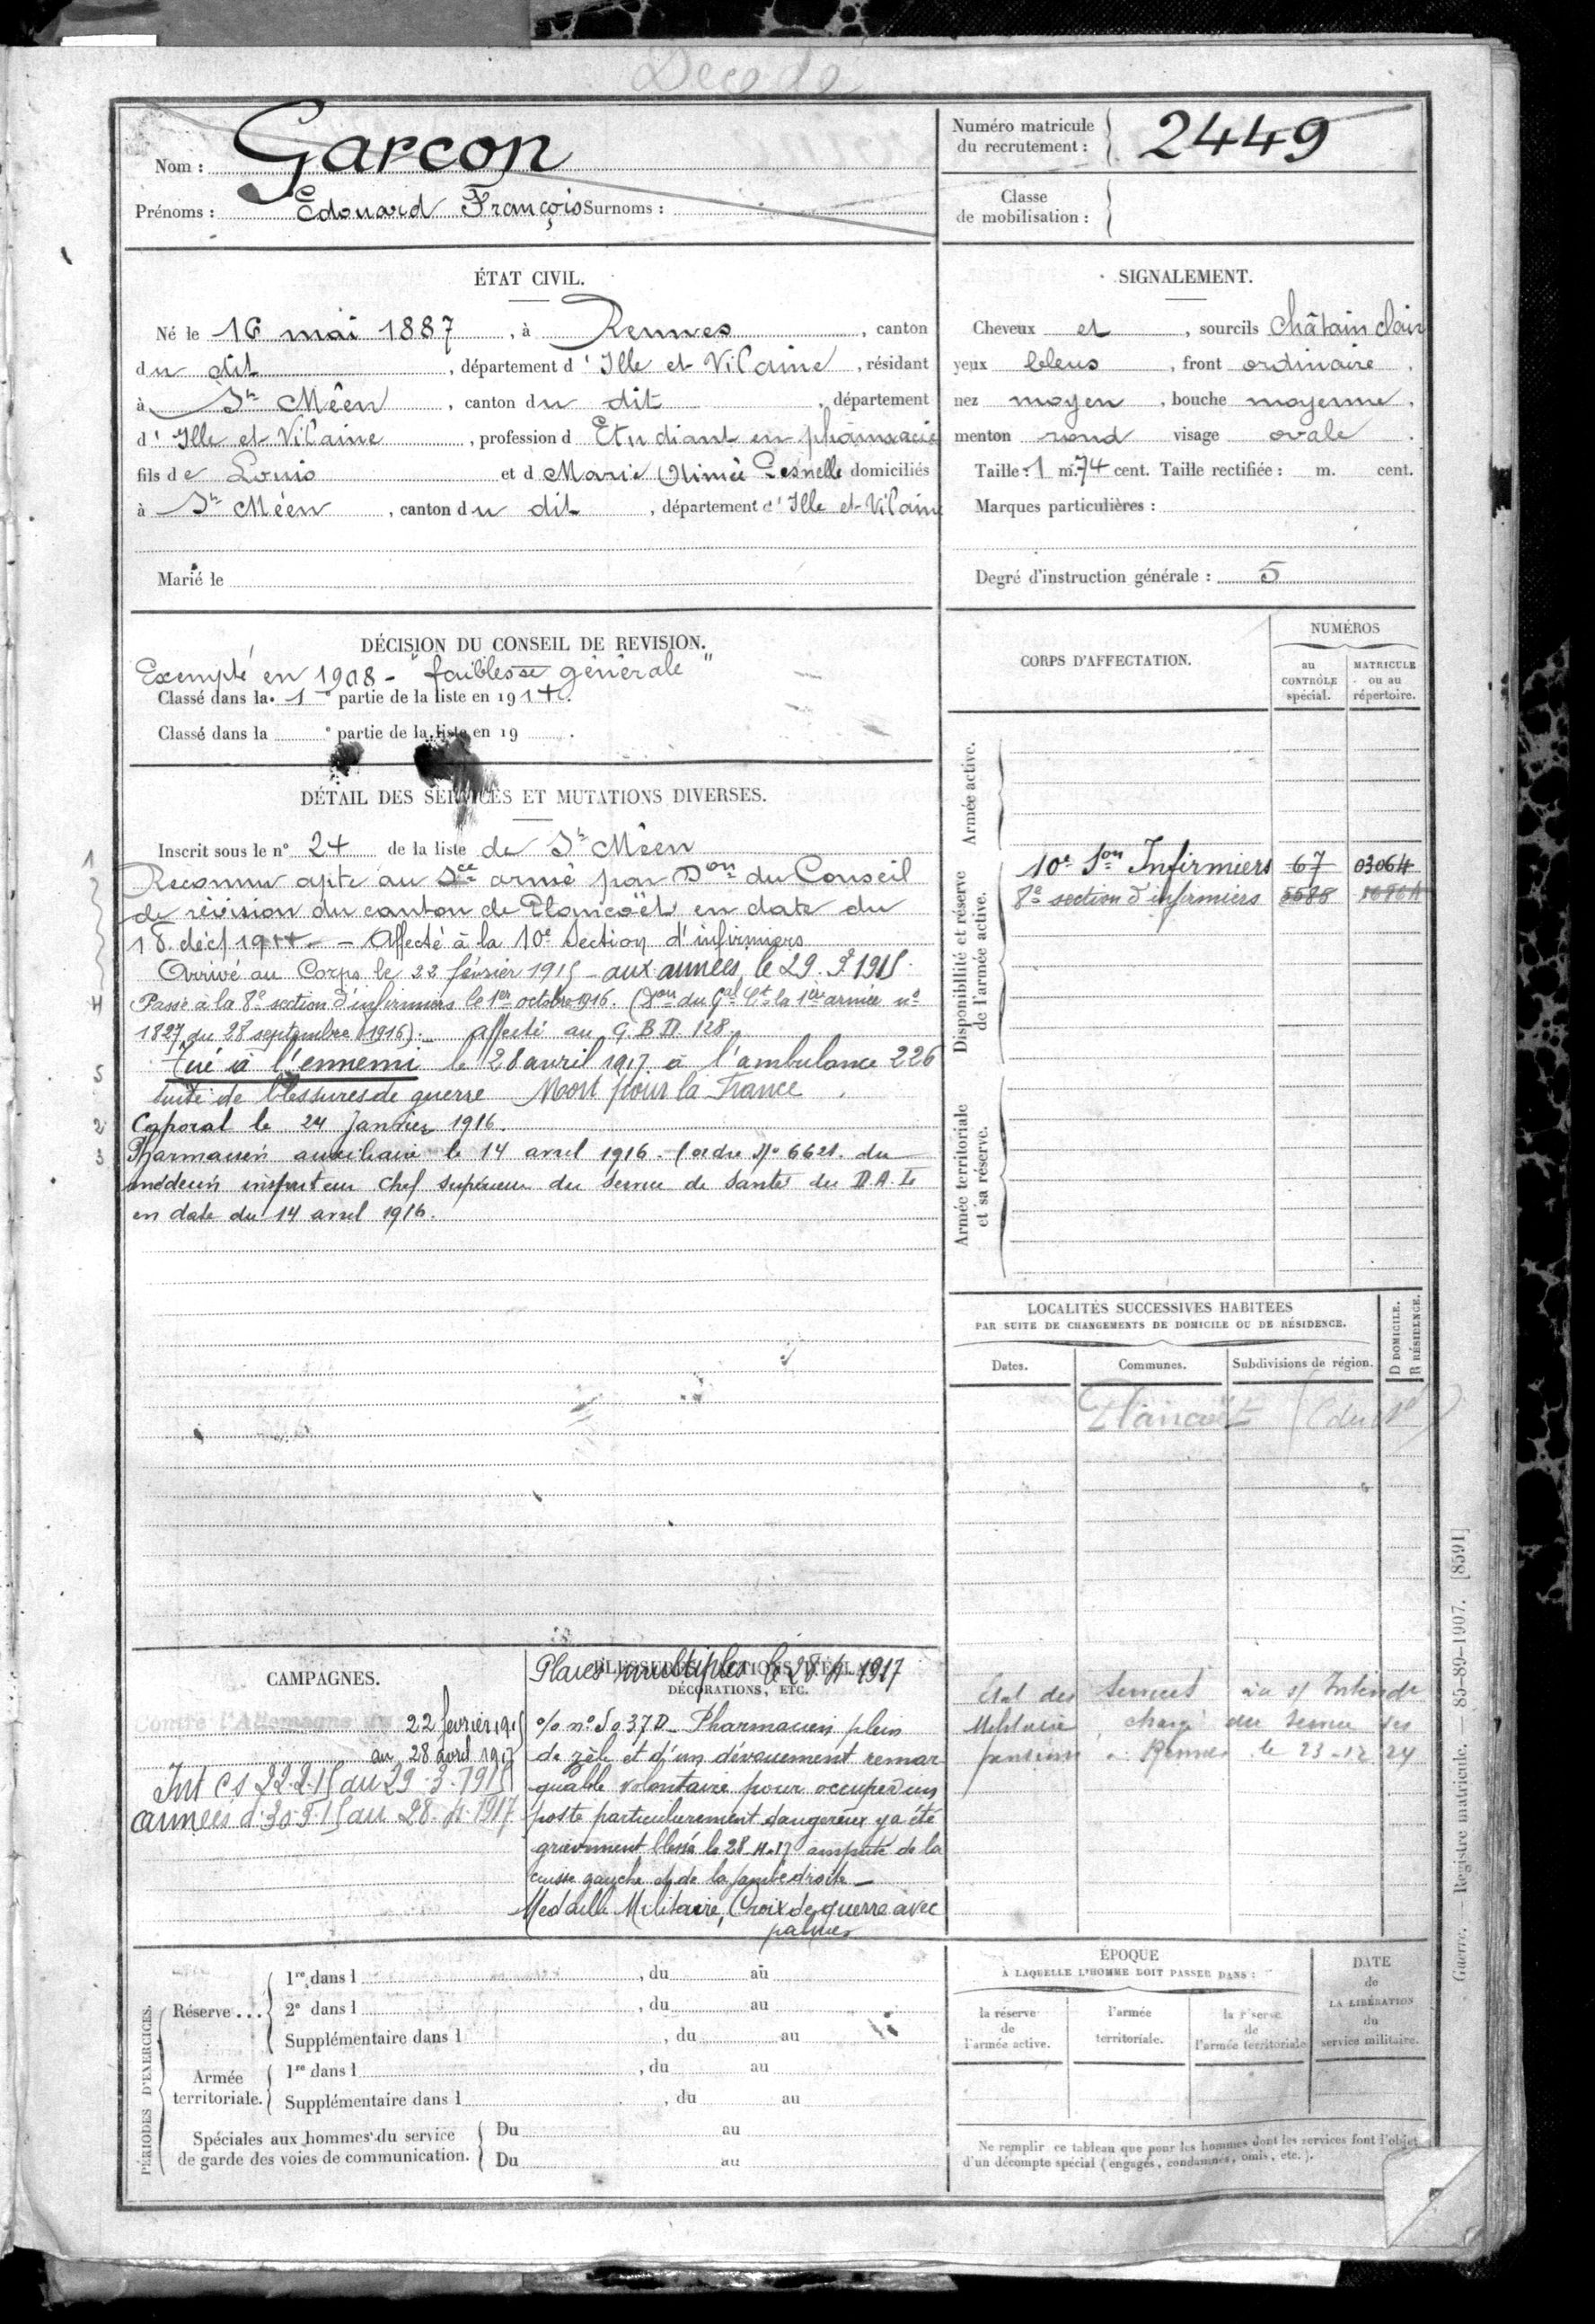 Décédé
Nom : Garçon
Prénoms : Edouard François Surnoms :
Numéro matricule du recrutement : 2449
Classe de mobilisation :
ÉTAT CIVIL.
Né le 16 mai 1887, à Rennes, canton
du dit, département d'Ille et Vilaine, résidant
à St Méen, canton du dit, département
d'Ille et Vilaine, profession d Etudiant en pharmacie
fils de Louis et d Marie Aimée Gesnelle domiciliés
à St Méen, canton du dit, département d'Ille et Vilaine
Marié le
SIGNALEMENT.
Cheveux et, sourcils châtain clair
yeux bleus, front ordinaire.
nez moyen, bouche moyenne.
menton rond visage ovale.
Taille : 1 m. 74 cent. Taille rectifiée : m. cent.
Marques particulières :
Degré d'instruction générale : 5
DÉCISION DU CONSEIL DE REVISION.
Exempté en 1908 - "faiblesse générale"
Classé dans la 1e partie de la liste en 1914.
Classé dans la e partie de la liste en 19 .
DÉTAIL DES SERVICES ET MUTATIONS DIVERSES.
Inscrit sous le n° 24 de la liste de St Méen
1 Reconnu apte au Sce armé par Don du Conseil
de révision du canton de Plancoët en date du
18 déc 1914 - Affecté à la 10e Section d'infirmiers
Arrivé au Corps le 22 février 1915 - aux armées le 29.3.1915.
4 Passé à la 8e section d'infirmiers le 1er octobre 1916. (Don du Gal Ct la 1ère armée n°
1827 du 28 septembre 1916). affecté au G.B.D. 128.
5 Tué à l'ennemi le 28 avril 1917 à l'ambulance 226
suite de blessures de guerre Mort pour la France.
2 Caporal le 24 Janvier 1916.
3 Pharmacien auxiliaire le 14 avril 1916. (ordre N° 6621 du
médecin inspecteur chef supérieur du Service de Santé du D.A.L
en date du 14 avril 1916.
CORPS D'AFFECTATION.
NUMÉROS
au CONTRÔLE spécial.
MATRICULE ou au répertoire.
Armée active.
Disponibilité et réserve de l'armée active.
10e Son Infirmiers 67 03064
8e section d'infirmiers 5585
Armée territoriale et sa réserve.
LOCALITÉS SUCCESSIVES HABITÉES
PAR SUITE DE CHANGEMENTS DE DOMICILE OU DE RÉSIDENCE.
Dates. Communes. Subdivisions de région. D DOMICILE. R RÉSIDENCE.
Plancoët (du Nd)
Etat des Services à s/ Intend
Militaire chargé du Service des
pensions à Rennes le 23-12-24
CAMPAGNES.
Contre l'Allemagne du 22 février 1915
au 28 avril 1917
Int CS 22.2.15 au 29.3.1915
armées d. 30.3.15 au 28.4.1917.
BLESSURES, ACTIONS D'ÉCLAT,
DÉCORATIONS, ETC.
Plaies multiples le 28.4.1917
o/o n° 5037 D. Pharmacien plein
de zèle et d'un dévouement remar
quable volontaire pour occuper un
poste particulièrement dangereux y a été
grièvement blessé le 28.4.17 amputé de la
cuisse gauche et de la jambe droite -
Médaille Militaire, Croix de guerre avec
palmes
PÉRIODES D'EXERCICES.
Réserve... 1re dans l , du au
2e dans l , du au
Supplémentaire dans l , du au
Armée territoriale. 1re dans l , du au
Supplémentaire dans l , du au
Spéciales aux hommes du service de garde des voies de communication. Du au
Du au
ÉPOQUE
À LAQUELLE L'HOMME DOIT PASSER DANS :
la réserve de l'armée active.
l'armée territoriale.
la réserve de l'armée territoriale
DATE de LA LIBÉRATION du service militaire.
Ne remplir ce tableau que pour les hommes dont les services font l'objet
d'un décompte spécial (engagés, condamnés, omis, etc.).
Guerre. — Registre matricule. — 85-89-1907. [8591]